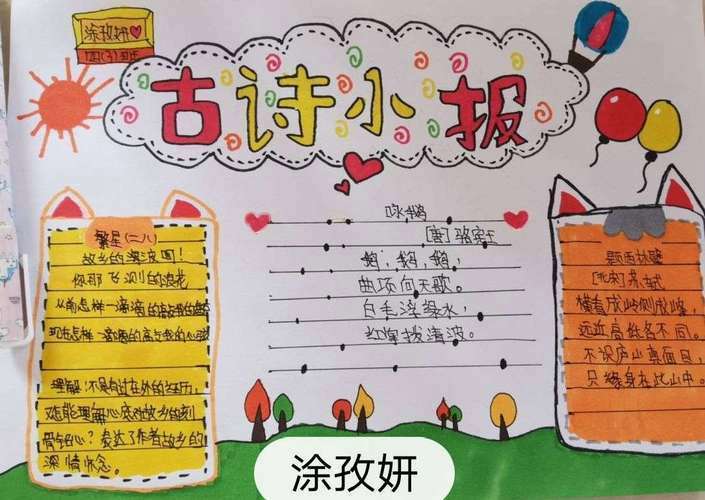 涂孜妍
四(3)班
古诗小报
繁星(二八)
故乡的
你那飞溅的浪花
从前怎样一滴滴的敲我的
现在怎样一滴滴的敲我的心弦
理解:不是有过在外的经历,
怎能理解心底对故乡的刻
骨铭心?表达了作者故乡的
深情怀念。
咏鹅
[唐]骆宾王
鹅,鹅,鹅,
曲项向天歌。
白毛浮绿水,
红掌拨清波。
题西林壁
[北宋]苏轼
横看成岭侧成峰,
远近高低各不同。
不识庐山真面目,
只缘身在此山中。
涂孜妍